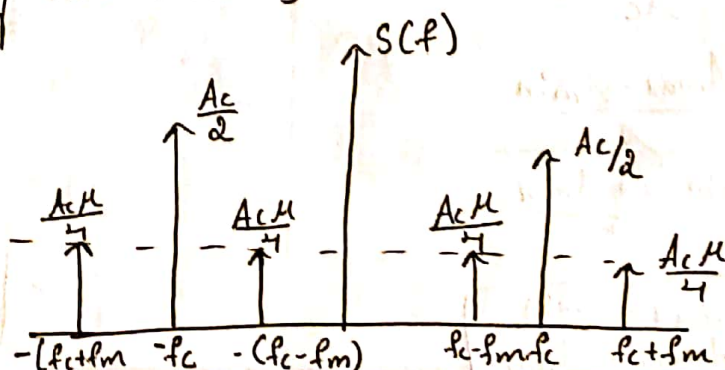 S(f)
Ac/2
Ac/2
Acμ/4
Acμ/4
Acμ/4
Acμ/4
-(fc+fm -fc -(fc-fm) fc-fm fc fc+fm